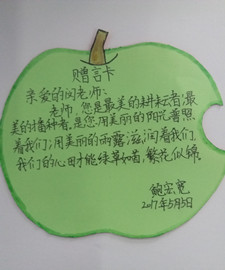 赠言卡
亲爱的闵老师:
老师,您是最美的耕耘者,最
美的播种者,是您用美丽的阳光普照
着我们;用美丽的雨露滋润着我们,
我们的心田才能绿草如茵,繁花似锦
鲍宏宽
2017年5月5日